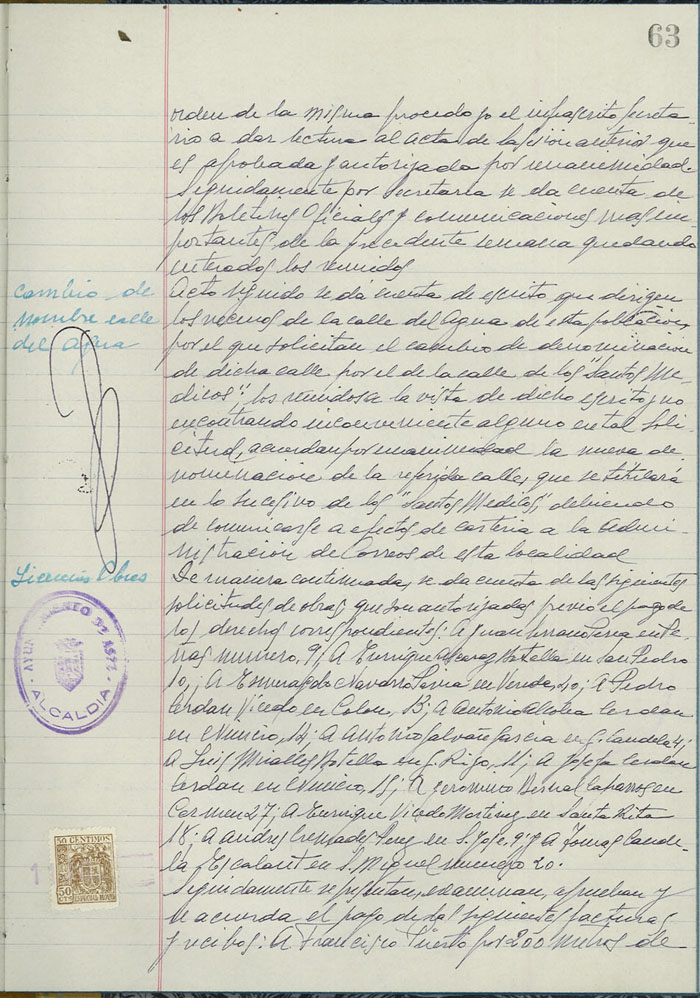 63
orden de la misma procedo yo el infrascrito Secreta-
rio a dar lectura al acta de la sesión anterior que
es aprobada y autorizada por unanimidad.
Seguidamente por Secretaria se da cuenta de
los Boletines Oficiales y comunicaciones mas im-
portantes de la precedente semana quedando
enterados los reunidos
Cambio de
nombre calle
del Agua
Acto siguido se dá cuenta de escrito que dirigen
los vecinos de la calle del Agua de esta población,
por el que solicitan el cambio de denominacion
de dicha calle por el de la calle de los "Santos Me-
dicos"; los reunidos a la vista de dicho escrito y no
encontrando inconveniente alguno en tal soli-
citud, acuerdan por unanimidad la nueva de-
nominacion de la referida calle, que se titulará
en lo sucesivo de los "Santos Medicos", debiendo
de comunicarse a efectos de carteria a la admi-
nistración de Correos de esta localidad
Licencias Obras
De manera continuada, se da cuenta de las siguientes
solicitudes de obras, que son autorizadas previo el pago de
los derechos correspondientes: A Juan Serrano en Pe-
ñas numero, 9; A Enrique Alcaraz Botella en San Pedro
10; A Esmeragdo Navarro en 40; A Pedro
Cerdan Vicedo en Colon, 13; A Antonio Cerdan
en 14; A Antonio Galvañ Garcia en G. Candela 4;
A Luis Miralles Botella en G. Rigo, 11; A Josefa Cerdan
Cerdan en 15; A Geronimo Bernal Caparros en
Carmen 27; A Enrique Vicedo Martinez en Santa Rita
18; A Andres Crespades Perez en S. Jose, 9 y A Tomas Cande-
la Escalant en S. Miguel numero 20.
Seguidamente se presentan, examinan, aprueban y
se acuerda el pago de las siguientes facturas
y recibos: A Francisco Puerto por 200 metros de
AYUNTAMIENTO DE ASPE
ALCALDIA
50 CENTIMOS
50
CTS